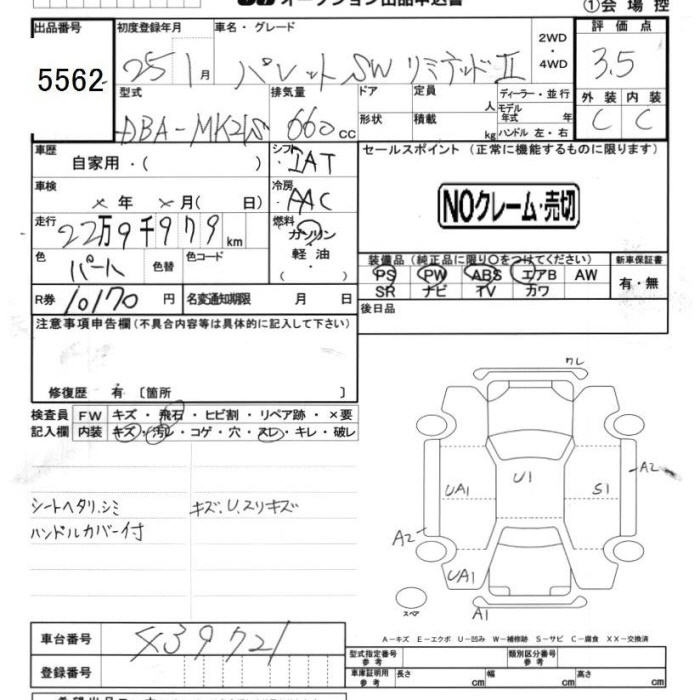 オークション出品申込書
①会場控
出品番号 初度登録年月 車名・グレード 評価点
5562 25 1月 パレットSW リミテッドⅡ 2WD・4WD 3.5
型式 排気量 ドア 定員 人 ディーラー・並行 外装 内装
DBA-MK21S 660cc 形状 積載 kg モデル年式 年 C C
ハンドル 左・右
車歴 自家用・( ) シフト IAT セールスポイント(正常に機能するものに限ります)
車検 ×年 ×月( 日) 冷房 AAC NOクレーム・売切
走行 22万9千979km 燃料 ガソリン・軽油 ( ・ )
色 パート 色替 色コード
装備品(純正品に限り○をつけてください) 新車保証書
PS PW ABS エアB AW 有・無
SR ナビ TV カワ
R券 10170円 名変通知期限 月 日 後日品
注意事項申告欄(不具合内容等は具体的に記入して下さい)
修復歴 有 〔箇所 〕
検査員記入欄 FW キズ・飛石・ヒビ割・リペア跡・×要
内装 キズ・汚レ・コゲ・穴・スレ・キレ・破レ
シートヘタリ.シミ キズ.U.スリキズ
ハンドルカバー付
ワレ
A2
UA1 U1 S1
A2
UA1
スペア A1
A-キズ E-エクボ U-凹み W-補修跡 S-サビ C-腐食 XX-交換済
車台番号 439721
型式指定番号 参考 類別区分番号 参考
登録番号 車庫証明用 参考 長さ cm 幅 cm 高さ cm